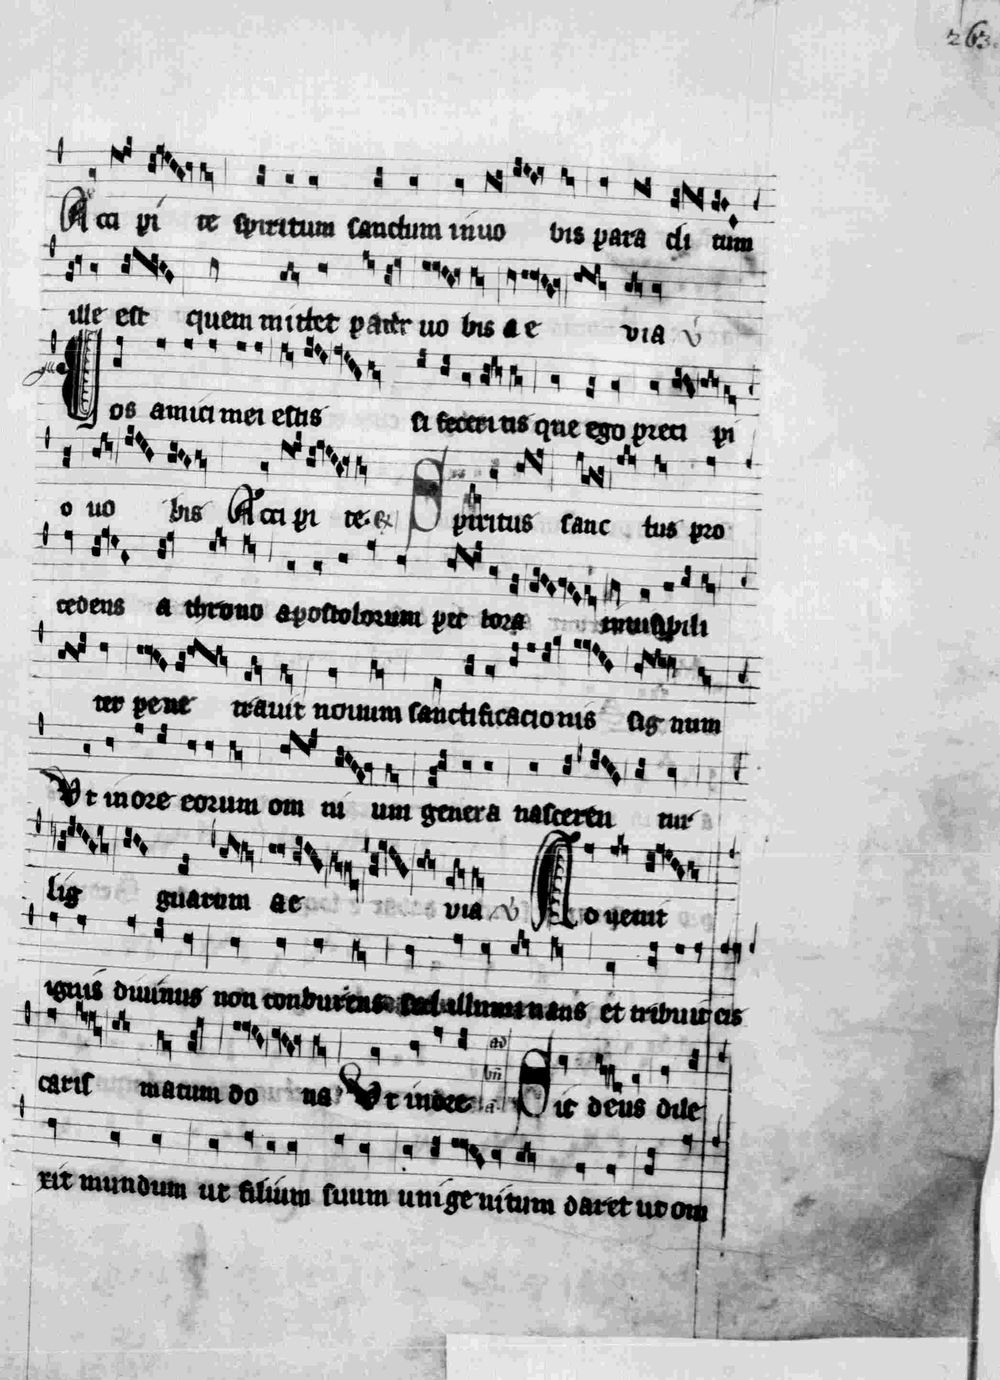 263.
Acci pi te spiritum sanctum in uo bis para cli tum
ille est quem mittet pater uo bis a e via v
Vos amici mei estis si feceri tis que ego preci pi
o uo bis Acci pi te. Spiritus sanc tus pro
cedens a throno apostolorum pec tora inuisibili
ter pene trauit nouum sanctificacionis sig num
Ut in ore eorum om ni um genera nasceren tur
lig guarum ae via v Aduenit
ignis diuinus non conburens sed illuminans et tribuit eis
caris matum do na Ut in ore ad bn a Sic deus dile
xit mundum ut filium suum unigenitum daret ut om